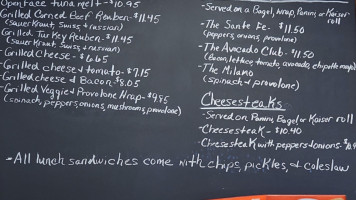 Openface tuna melt - $10.95
Grilled Corned Beef Reuben - $11.45
(Sauer Kraut, Swiss, + russian)
Grilled Turkey Reuben - $11.45
(Sauer Kraut, Swiss, + russian)
- Grilled Cheese - $6.65
Grilled cheese + tomato - $7.15
Grilled cheese + Bacon - $8.05
Grilled Veggie + Provolone Wrap - $9.95
(spinach, peppers, onions, mushrooms, provolone)
- Served on a Bagel, Wrap, Panini, or Kaiser roll
- The Santa Fe - $11.50
(peppers, onions, provolone)
- The Avocado Club - $11.50
(Bacon, lettuce, tomato, avocado, chipotle mayo)
- The Milano
(spinach + provolone)
Cheesesteaks
- Served on Panini, Bagel or Kaiser roll
- Cheesesteak - $10.40
- Cheesesteak with peppers + onions -
- All lunch sandwiches come with chips, pickles, + coleslaw